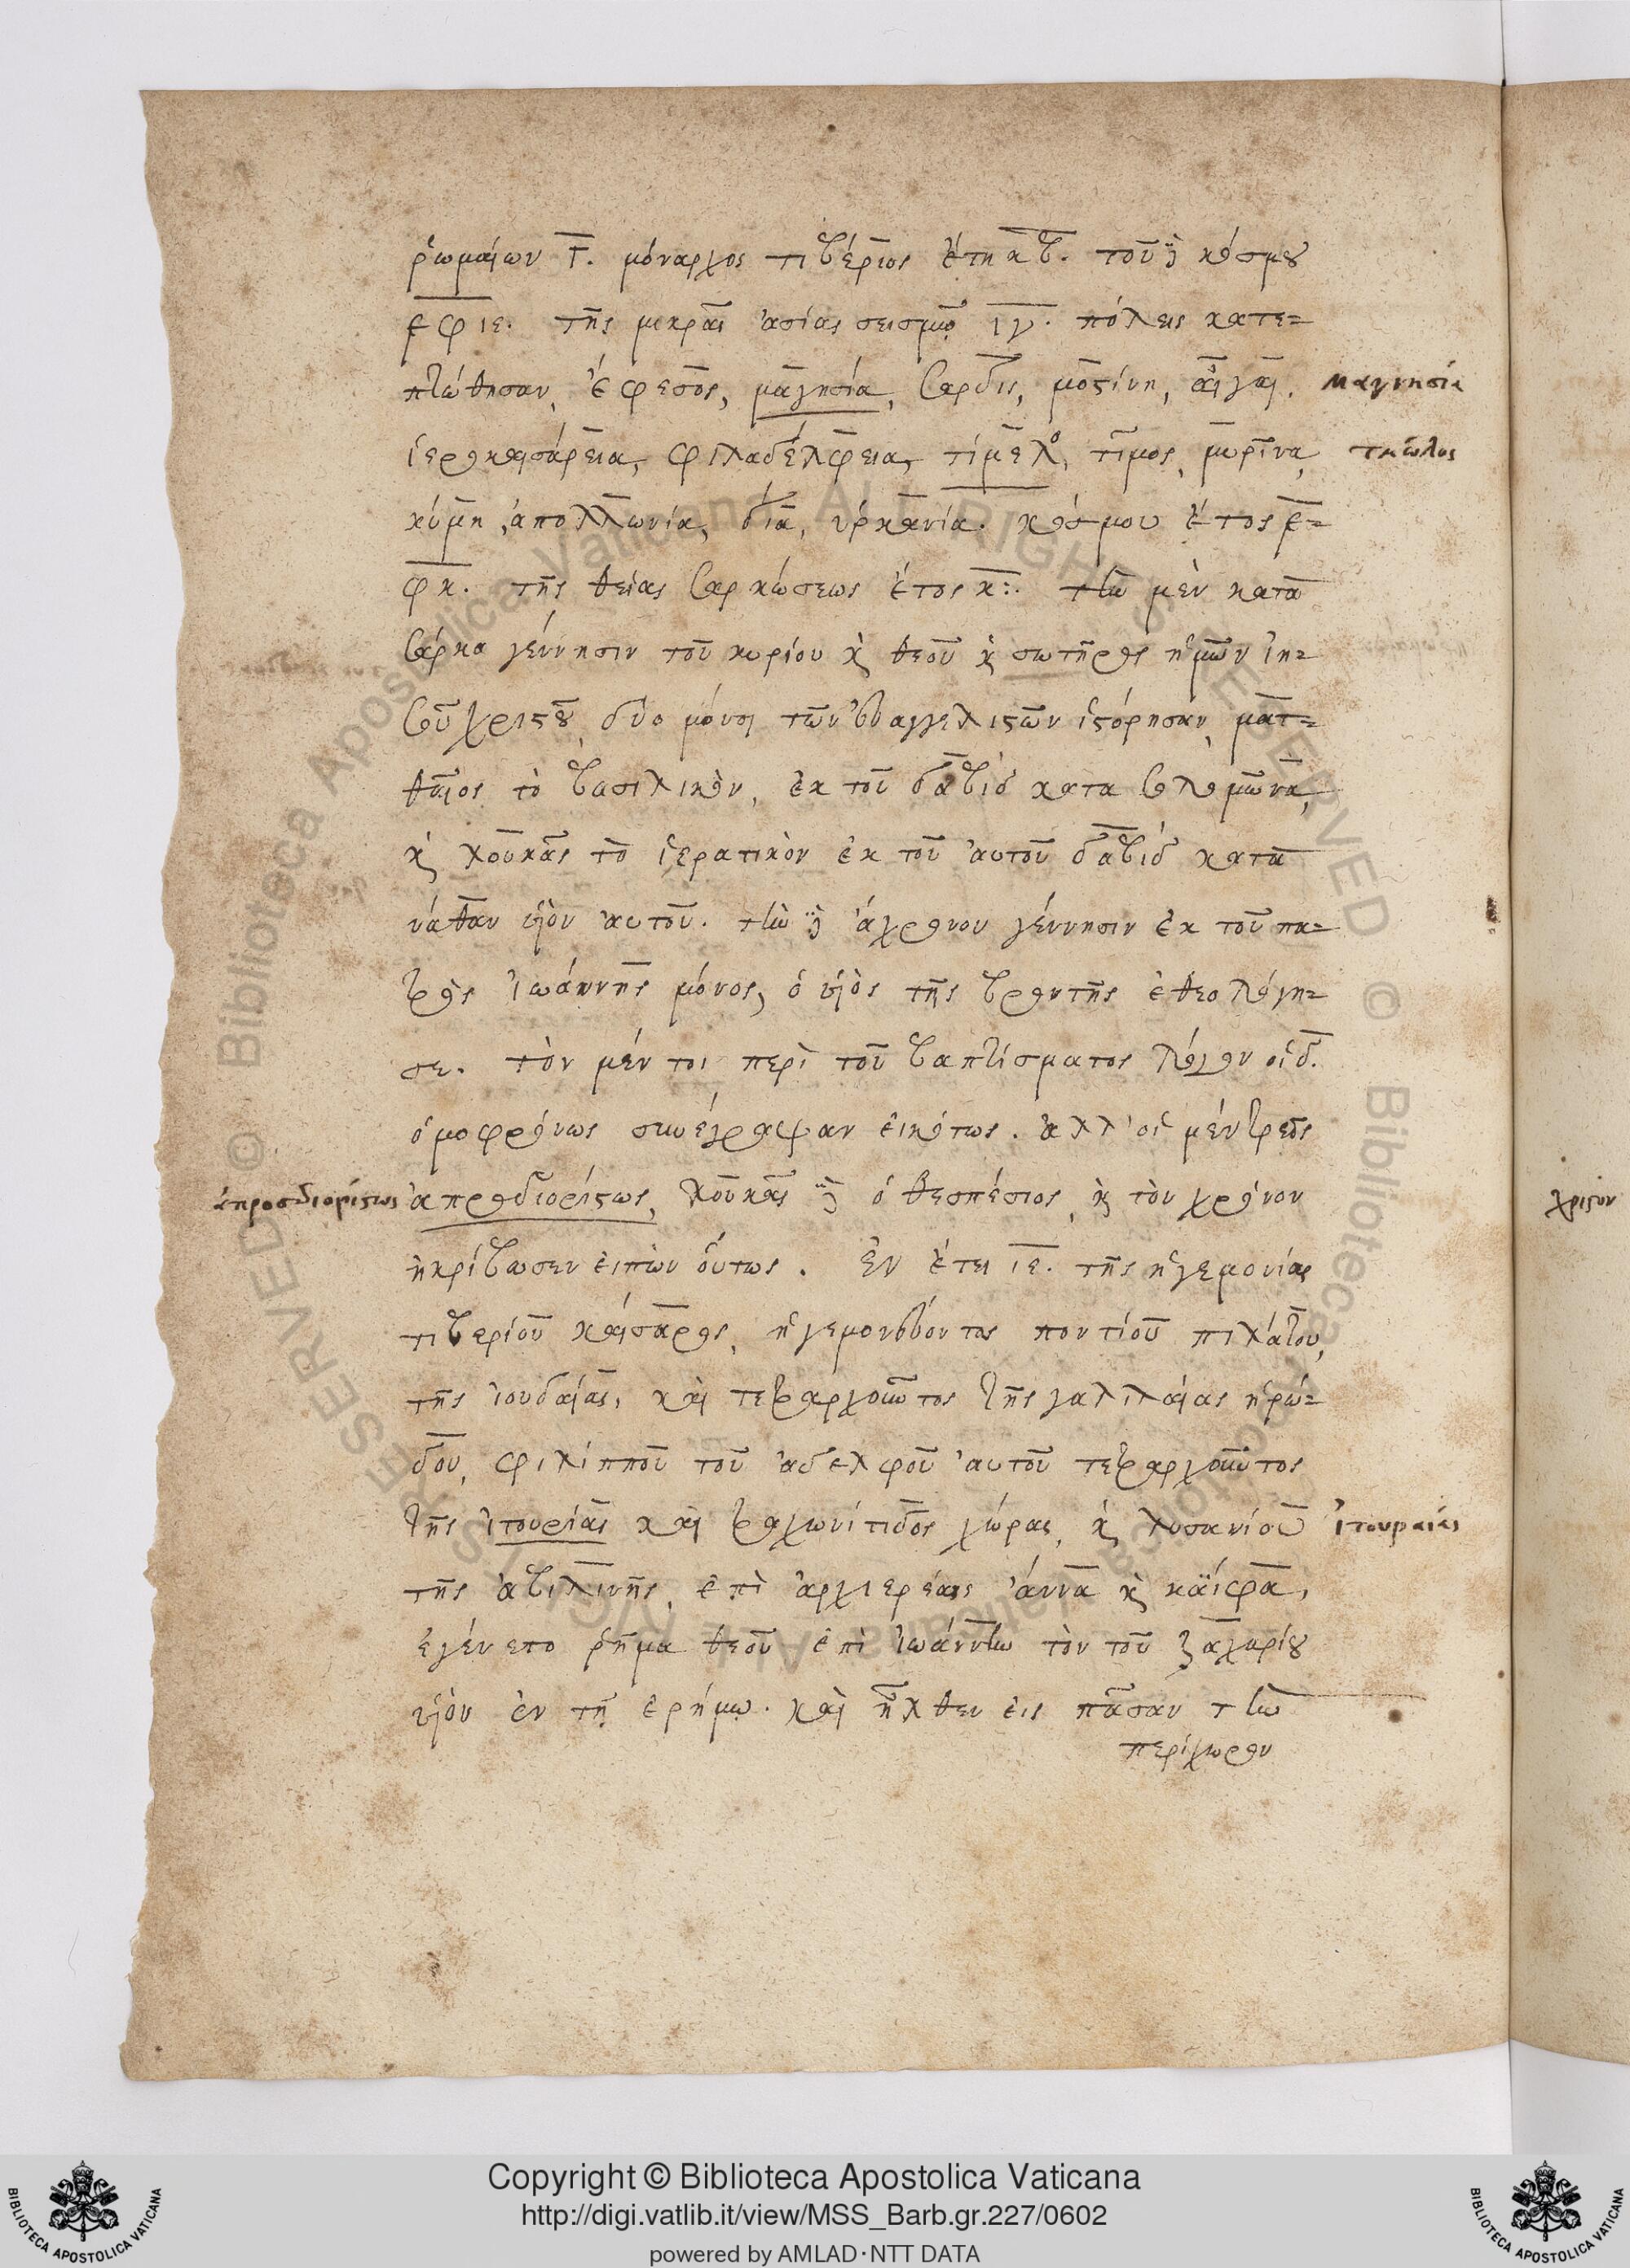 ῥωμαίων Γ. μόναρχος τιβέριος ἔτη κβ. τοῦ δὲ κόσμου
εφιε. τῆς μικρᾶς ἀσίας σεισμῷ ιγ. πόλεις κατε-
πτώθησαν, ἔφεσος, μαγησία, σαρδις, μοστίνη, αἰγαὶ, μαγνησία
ἱεροκαισάρεια, φιλαδέλφεια, τίμελο, τίμος, μωρίνα, τμῶλος
κύμη, ἀπολλωνία, δία, ὑρκανία. κόσμου ἔτος ε-
φκ. τῆς θείας σαρκώσεως ἔτος κ:. τὴν μὲν κατὰ
σάρκα γέννησιν τοῦ κυρίου καὶ θεοῦ καὶ σωτῆρος ἡμῶν ἰη-
σοῦ χριστοῦ, δύο μόνοι τῶν εὐαγγελιστῶν ἱστόρησαν, ματ-
θαῖος τὸ βασιλικὸν, ἐκ τοῦ δαβὶδ κατα σολομῶνα,
καὶ λουκᾶς τὸ ἱερατικὸν ἐκ τοῦ αὐτοῦ δαβὶδ κατὰ
νάθαν υἱὸν αὐτοῦ. τὴν δὲ ἄχρονον γέννησιν ἐκ τοῦ πα-
τρὸς ἰωάννης μόνος, ὁ υἱὸς τῆς βροντῆς ἐθεολόγη-
σε. τὸν μέν τοι περὶ τοῦ βαπτίσματος λόγον οἱ δ.
ὁμοφρόνως συνέγραψαν εἰκότως. ἀλλ' οἱ μὲν τρεῖς
ἀπροσδιορίστως ἀπροδιορίστως, λουκᾶς δὲ ὁ θεσπέσιος, καὶ τὸν χρόνον
ἠκρίβωσεν εἰπὼν οὕτως. Ἐν ἔτει ιε. τῆς ἡγεμονίας
τιβερίου καίσαρος, ἡγεμονεύοντος ποντίου πιλάτου,
τῆς ἰουδαίας, καὶ τετραρχοῦντος τῆς γαλιλαίας ἡρώ-
δου, φιλίππου τοῦ ἀδελφοῦ αὐτοῦ τετραρχοῦντος
τῆς ἰτουρίας καὶ τραχωνίτιδος χώρας, καὶ λυσανίου ἰτουραίας
τῆς ἀβιλινῆς, ἐπὶ ἀρχιερέως ἄννα καὶ καϊάφα,
ἐγένετο ῥῆμα θεοῦ ἐπὶ ἰωάννην τὸν τοῦ ζαχαρίου
υἱὸν ἐν τῇ ἐρήμῳ. καὶ ἦλθεν εἰς πᾶσαν τὴν
περίχωρον
χριστὸν
Copyright © Biblioteca Apostolica Vaticana
http://digi.vatlib.it/view/MSS_Barb.gr.227/0602
powered by AMLAD·NTT DATA
BIBLIOTECA APOSTOLICA VATICANA
BIBLIOTECA APOSTOLICA VATICANA